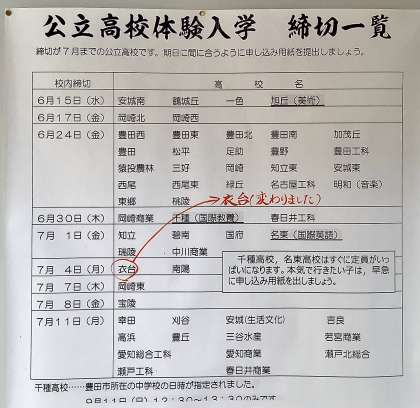 公立高校体験入学 締切一覧
締切が7月までの公立高校です。期日に間に合うように申し込み用紙を提出しましょう。
校内締切 高校名
6月15日(水) 安城南 鶴城丘 一色 旭丘(美術)
6月17日(金) 岡崎北 岡崎西
6月24日(金) 豊田西 豊田東 豊田北 豊田南 加茂丘
豊田 松平 足助 豊野 豊田工科
猿投農林 三好 岡崎 知立東 安城東
西尾 西尾東 緑丘 名古屋工科 明和(音楽)
東郷 桃陵 衣台(変わりました)
6月30日(木) 岡崎商業 千種(国際教養) 春日井工科
7月 1日(金) 知立 碧南 国府 名東(国際英語)
瑞陵 中川商業
7月 4日(月) 衣台 南陽
千種高校,名東高校はすぐに定員がいっ
ぱいになります。本気で行きたい子は,早急
に申し込み用紙を出しましょう。
7月 7日(木) 岡崎東
7月 8日(金) 宝陵
7月11日(月) 幸田 刈谷 安城(生活文化) 吉良
高浜 豊丘 三谷水産 若宮商業
愛知総合工科 愛知商業 瀬戸北総合
瀬戸工科 春日井商業
千種高校……豊田市所在の中学校の日時が指定されました。
9月11日(日)12:30~13:30のみです